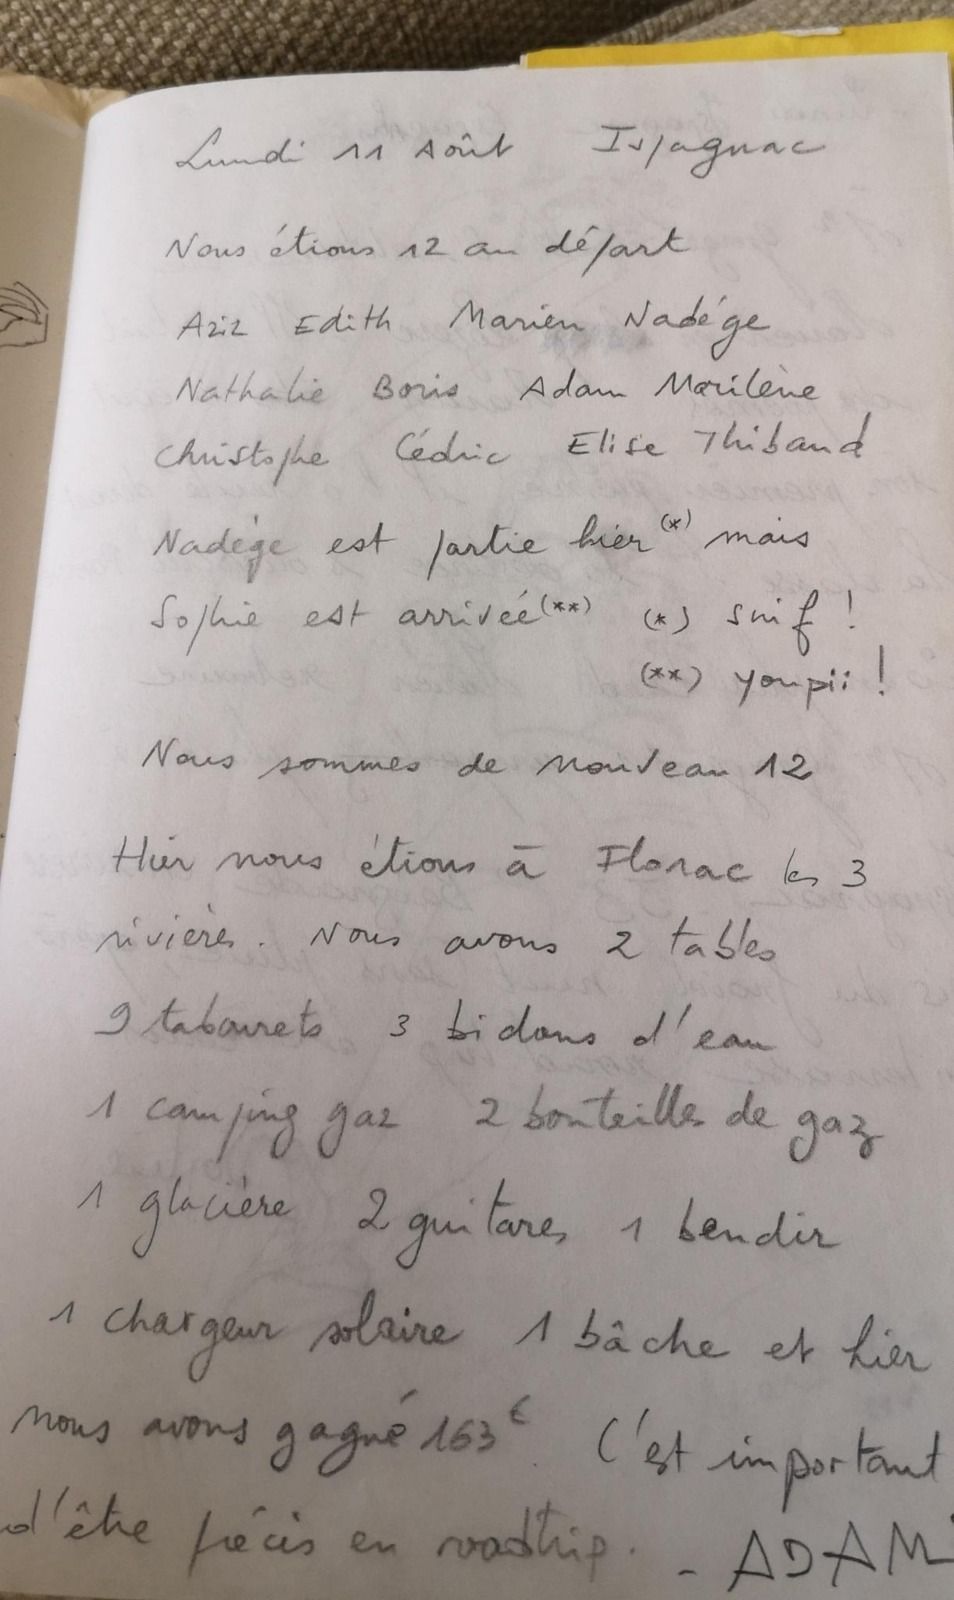 Lundi 11 Août Ispagnac
Nous étions 12 au départ
Aziz Edith Marien Nadége
Nathalie Boris Adam Marilène
Christophe Cédric Elise Thibaud
Nadège est partie hier(*) mais
Sophie est arrivée(**) (*) snif !
(**) youpii !
Nous sommes de nouveau 12
Hier nous étions à Florac les 3
rivières. Nous avons 2 tables
9 tabourets 3 bidons d'eau
1 camping gaz 2 bouteilles de gaz
1 glacière 2 guitares 1 bendir
1 chargeur solaire 1 bâche et hier
nous avons gagné 163€. C'est important
d'être précis en roadtrip. - ADAM